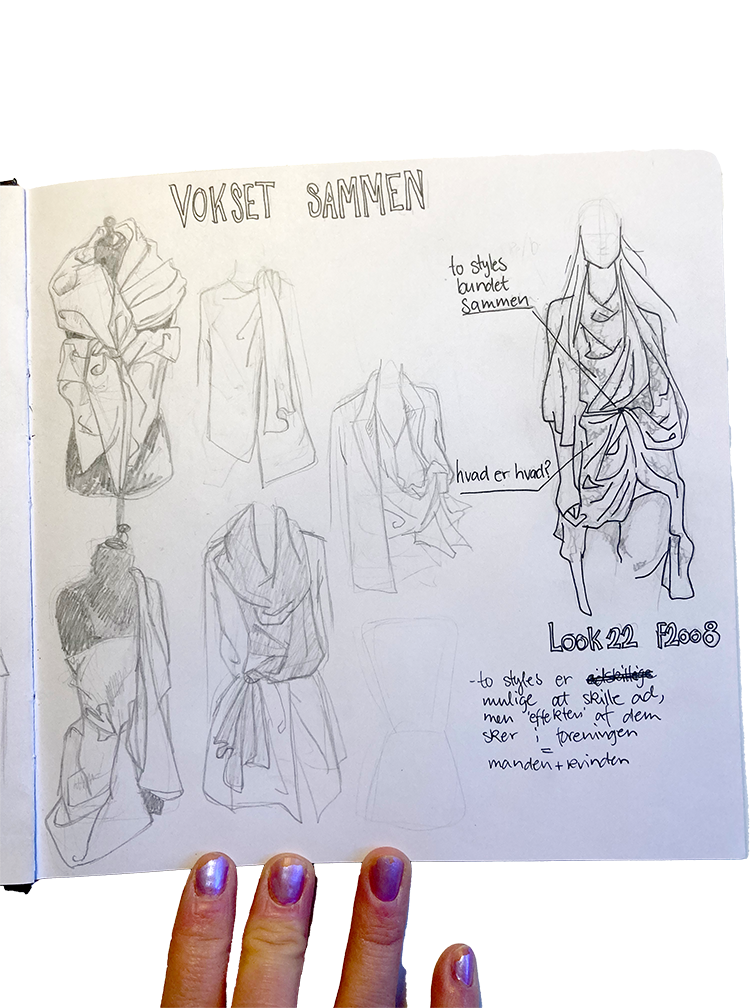 VOKSET SAMMEN
to styles
bundet
sammen
hvad er hvad?
LOOK 22 F2008
- to styles er
mulige at skille ad,
men 'effekten' af dem
sker i foreningen
=
manden + kvinden